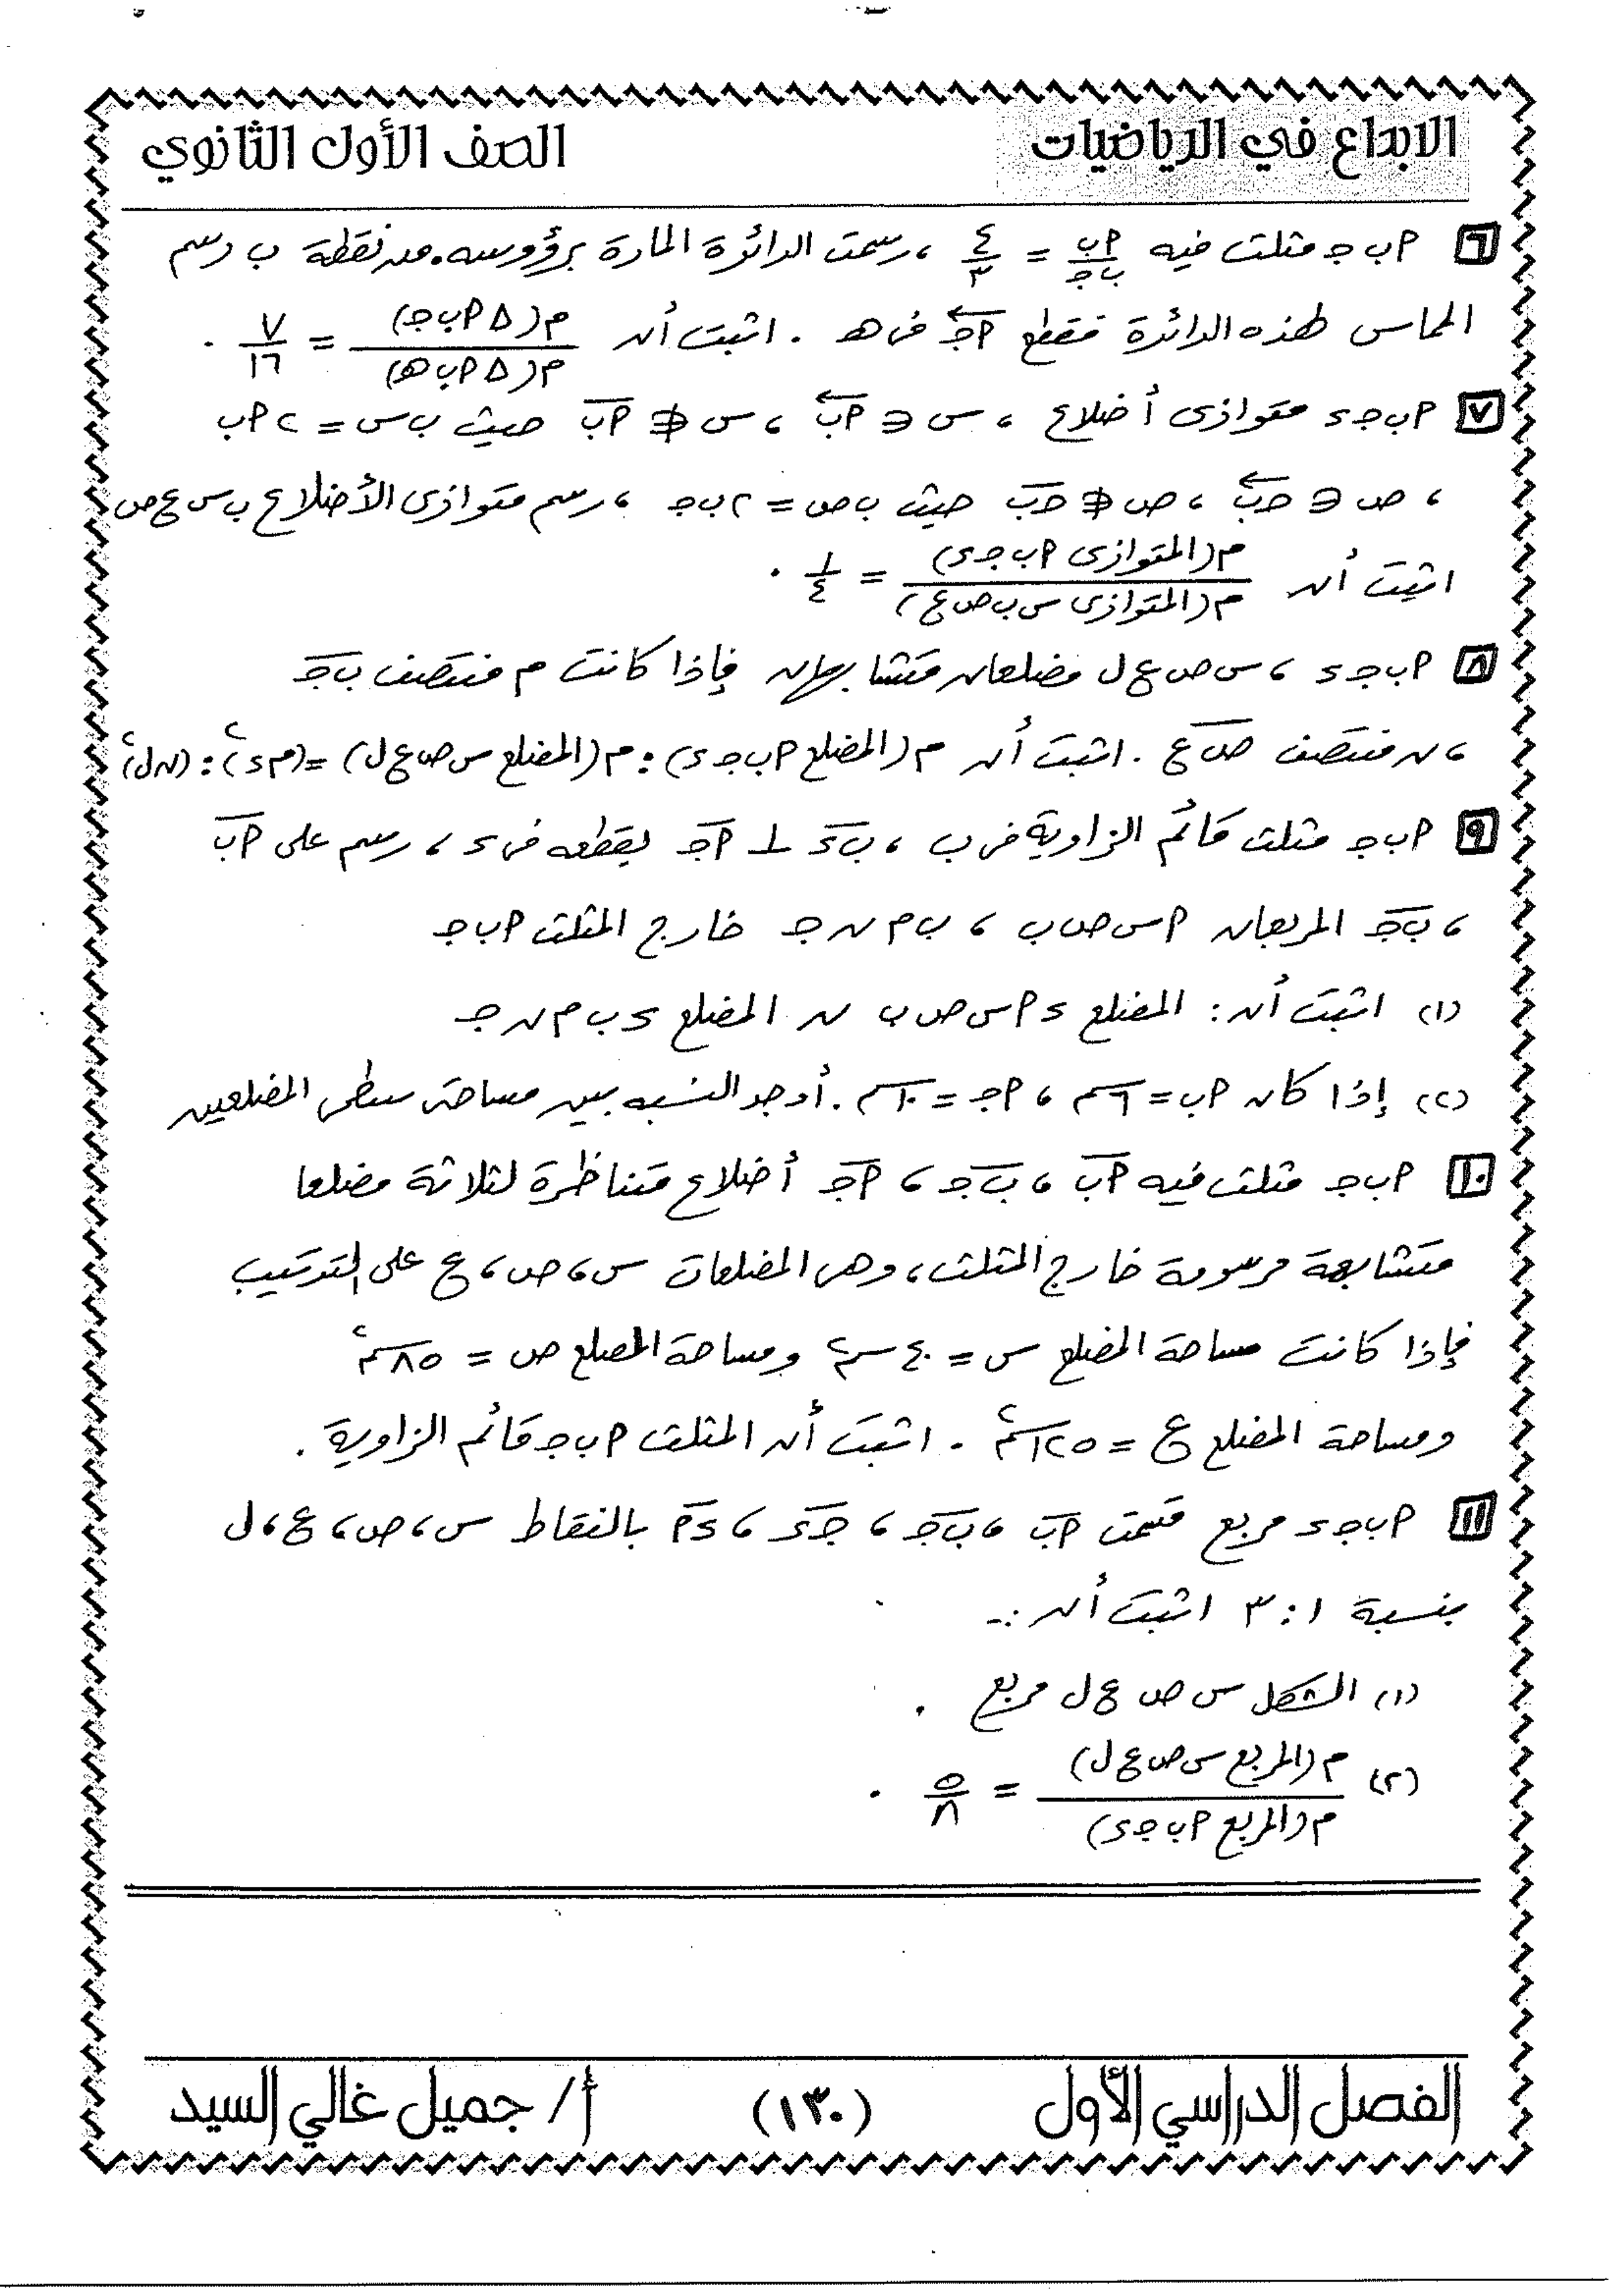 الابداع في الرياضيات
الصف الأول الثانوي
٦ أ ب جـ مثلث فيه أب/ب جـ = ٤/٣ ، رسمت الدائرة المارة برؤوسه . من نقطة ب رسم
المماس لهذه الدائرة فقطع أجـ فى هـ . اثبت أن م(△ أ ب جـ)/م(△ أ ب هـ) = ٧/١٦ .
٧ أ ب جـ ء متوازى أضلاع ، س ∈ أب ، س ∉ أب حيث ب س = ٢ أ ب
، ص ∈ جـب ، ص ∉ جـب حيث ب ص = ٢ ب جـ ، رسم متوازى الأضلاع ب س ع ص
اثبت أن م(المتوازى أ ب جـ ء)/م(المتوازى س ب ص ع) = ١/٤ .
٨ أ ب جـ ء ، س ص ع ل مضلعان متشابهان فإذا كانت م منتصف ب جـ
، ن منتصف ص ع . اثبت أن م(المضلع أ ب جـ ء) : م(المضلع س ص ع ل) = (م ء)٢ : (ن ل)٢
٩ أ ب جـ مثلث قائم الزاوية فى ب ، ب ء ⊥ أ جـ يقطعه فى ء ، رسم على أ ب
، ب جـ المربعان أ س ص ب ، ب م ن جـ خارج المثلث أ ب جـ
(١) اثبت أن : المضلع ء أ س ص ب ~ المضلع ء ب م ن جـ
(٢) إذا كان أ ب = ٦سم ، أ جـ = ١٠سم . أوجد النسبه بين مساحتى سطحى المضلعين
١٠ أ ب جـ مثلث فيه أ ب ، ب جـ ، أ جـ أضلاع متناظرة لثلاثة مضلعا
متشابهة مرسومة خارج المثلث ، وهى المضلعات س ، ص ، ع على الترتيب
فإذا كانت مساحة المضلع س = ٤٠ سم٢ ومساحة المضلع ص = ٨٥ سم٢
ومساحة المضلع ع = ١٢٥ سم٢ . اثبت أن المثلث أ ب جـ قائم الزاوية .
١١ أ ب جـ ء مربع قسمت أ ب ، ب جـ ، جـ ء ، ء أ بالنقاط س ، ص ، ع ، ل
بنسبة ١ : ٣ اثبت أن :-
(١) الشكل س ص ع ل مربع .
(٢) م(المربع س ص ع ل)/م(المربع أ ب جـ ء) = ٥/٨ .
الفصل الدراسي الأول
(١٣٠)
أ/ جميل غالي السيد